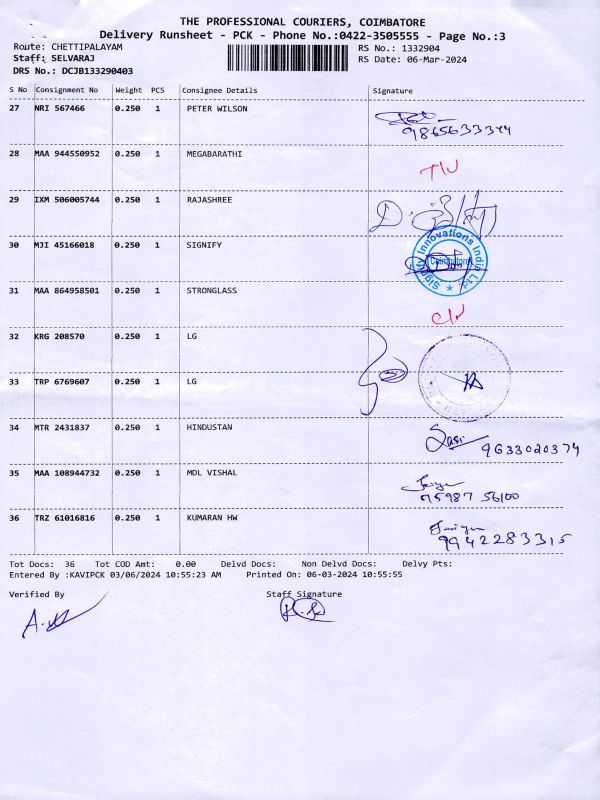 THE PROFESSIONAL COURIERS, COIMBATORE
Delivery Runsheet - PCK - Phone No.:0422-3505555 - Page No.:3
Route: CHETTIPALAYAM
RS No.: 1332904
Staff: SELVARAJ
RS Date: 06-Mar-2024
DRS No.: DCJB133290403
S No Consignment No Weight PCS Consignee Details Signature
27 NRI 567466 0.250 1 PETER WILSON
9865633344
28 MAA 944550952 0.250 1 MEGABARATHI
29 IXM 506005744 0.250 1 RAJASHREE
30 MJI 45166018 0.250 1 SIGNIFY
Signify Innovations India Ltd.
Coimbatore
31 MAA 864958501 0.250 1 STRONGLASS
32 KRG 208570 0.250 1 LG
33 TRP 6769607 0.250 1 LG
34 MTR 2431837 0.250 1 HINDUSTAN
Sasi 9633020374
35 MAA 108944732 0.250 1 MDL VISHAL
75987 56100
36 TRZ 61016816 0.250 1 KUMARAN HW
9942283315
Tot Docs: 36 Tot COD Amt: 0.00 Delvd Docs: Non Delvd Docs: Delvy Pts:
Entered By :KAVIPCK 03/06/2024 10:55:23 AM Printed On: 06-03-2024 10:55:55
Verified By Staff Signature